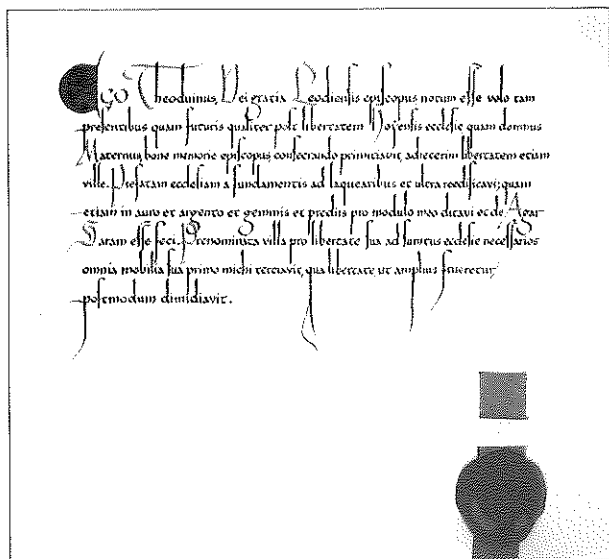 Ego Theoduinus, Dei gratia Leodiensis episcopus notum esse volo tam
presentibus quam futuris qualiter post libertatem Hoyensis ecclesie quam domnus
Maternus, bone memorie episcopus, consecrando primitiavit, adiecerim libertatem etiam
ville. Prefatam ecclesiam a fundamentis ad laquearibus et ultra reedificavi; quam
etiam in auro et argento et gemmis et prediis pro modulo meo ditavi et de Agar
Saram esse feci. Prenominata villa pro libertate sua ad sumtus ecclesie necessarios
omnia mobilia sua primo michi tertiavit, qua libertate ut amplius frueretur
postmodum dimidiavit.